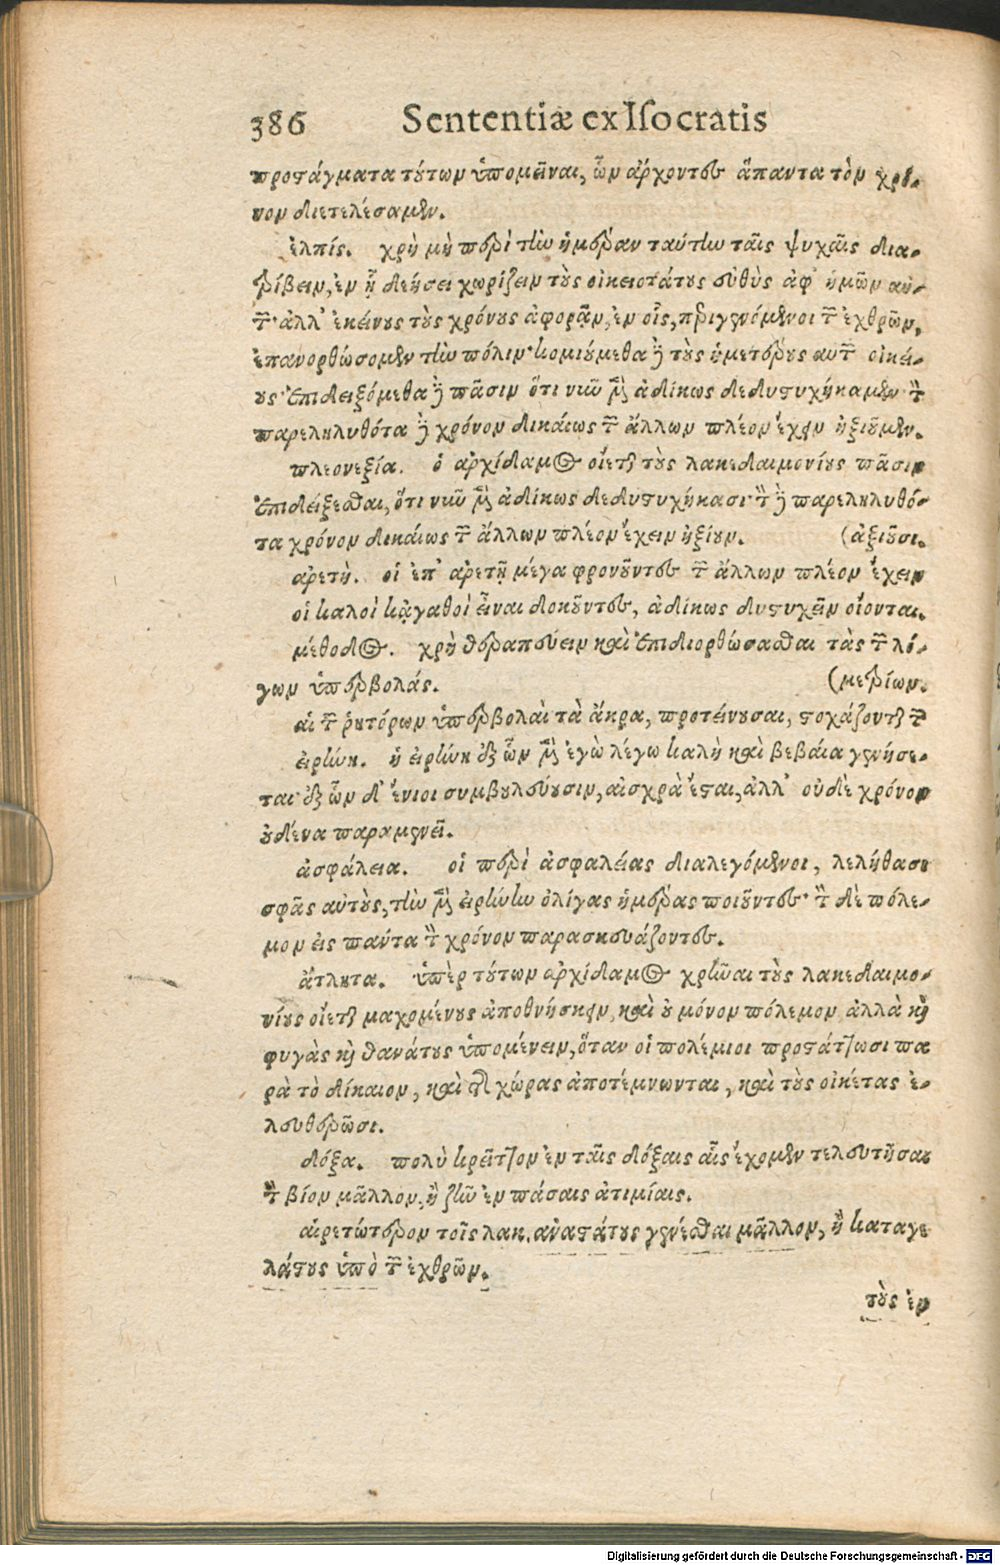 386 Sententiæ ex Isocratis
προστάγματα τούτων ὑπομεῖναι, ὧν ἄρχοντες ἅπαντα τὸν χρό-
νον διετελέσαμεν.
ἐλπίς. χρὴ μὴ περὶ τὴν ἡμέραν ταύτην ταῖς ψυχαῖς δια-
τρίβειν, ἐν ᾗ δεήσει χωρίζειν τοὺς οἰκειοτάτους εὐθὺς ἀφ' ἡμῶν αὐ-
τῶν· ἀλλ' ἐκείνους τοὺς χρόνους ἀφορᾷν, ἐν οἷς, περιγενόμενοι τῶν ἐχθρῶν,
ἐπανορθώσομεν τὴν πόλιν· κομιούμεθα δὲ τοὺς ἡμετέρους αὐτῶν οἰκεί-
ους· ἐπιδειξόμεθα δὲ πᾶσιν ὅτι νῦν μὲν ἀδίκως δεδυστυχήκαμεν· τὸν
παρεληλυθότα δὲ χρόνον δικαίως τῶν ἄλλων πλέον ἔχειν ἠξιοῦμεν.
πλεονεξία. ὁ ἀρχίδαμος οἴεται τοὺς λακεδαιμονίους πᾶσιν
ἐπιδείξεσθαι, ὅτι νῦν μὲν ἀδίκως δεδυστυχήκασι· τὸν δὲ παρεληλυθό-
τα χρόνον δικαίως τῶν ἄλλων πλέον ἔχειν ἠξίουν. (ἀξιοῦσι.
ἀρετή. οἱ ἐπ' ἀρετῇ μέγα φρονοῦντες τῶν ἄλλων πλέον ἔχειν
οἱ καλοὶ κᾀγαθοὶ εἶναι δοκοῦντες, ἀδίκως δυστυχεῖν οἴονται.
μέθοδος. χρὴ θεραπεύειν καὶ ἐπιδιορθώσασθαι τὰς τῶν λό-
γων ὑπερβολάς. (μετρίων.
αἱ τῶν ῥητόρων ὑπερβολαὶ τὰ ἄκρα, προτείνουσαι, στοχάζονται τῶν
εἰρήνη. ἡ εἰρήνη ἐξ ὧν μὲν ἐγὼ λέγω καλὴ καὶ βεβαία γενήσε-
ται· ἐξ ὧν δ' ἔνιοι συμβουλεύουσιν, αἰσχρὰ ἔσται, ἀλλ' οὐδὲ χρόνον
οὐδένα παραμενεῖ.
ἀσφάλεια. οἱ περὶ ἀσφαλείας διαλεγόμενοι, λελήθασι
σφᾶς αὐτοὺς, τὴν μὲν εἰρήνην ὀλίγας ἡμέρας ποιοῦντες· τὸν δὲ πόλε-
μον εἰς πάντα τὸν χρόνον παρασκευάζοντες.
ἄτλητα. ὑπὲρ τούτων ἀρχίδαμος χρῆναι τοὺς λακεδαιμο-
νίους οἴεται μαχομένους ἀποθνήσκειν, καὶ οὐ μόνον πόλεμον, ἀλλὰ καὶ
φυγὰς καὶ θανάτους ὑπομένειν, ὅταν οἱ πολέμιοι προστάττωσι πα
ρὰ τὸ δίκαιον, καὶ τῆς χώρας ἀποτέμνωνται, καὶ τοὺς οἰκέτας ἐ-
λευθερῶσι.
δόξα. πολὺ κρεῖττον ἐν ταῖς δόξαις αἷς ἔχομεν τελευτῆσαι
τὸν βίον μᾶλλον, ἢ ζῆν ἐν πάσαις ἀτιμίαις.
αἱρετώτερον τοῖς λακ. ἀναστάτους γενέσθαι μᾶλλον, ἢ καταγε
λάστους ὑπὸ τῶν ἐχθρῶν.
τοὺς ἐν
Digitalisierung gefördert durch die Deutsche Forschungsgemeinschaft - DFG